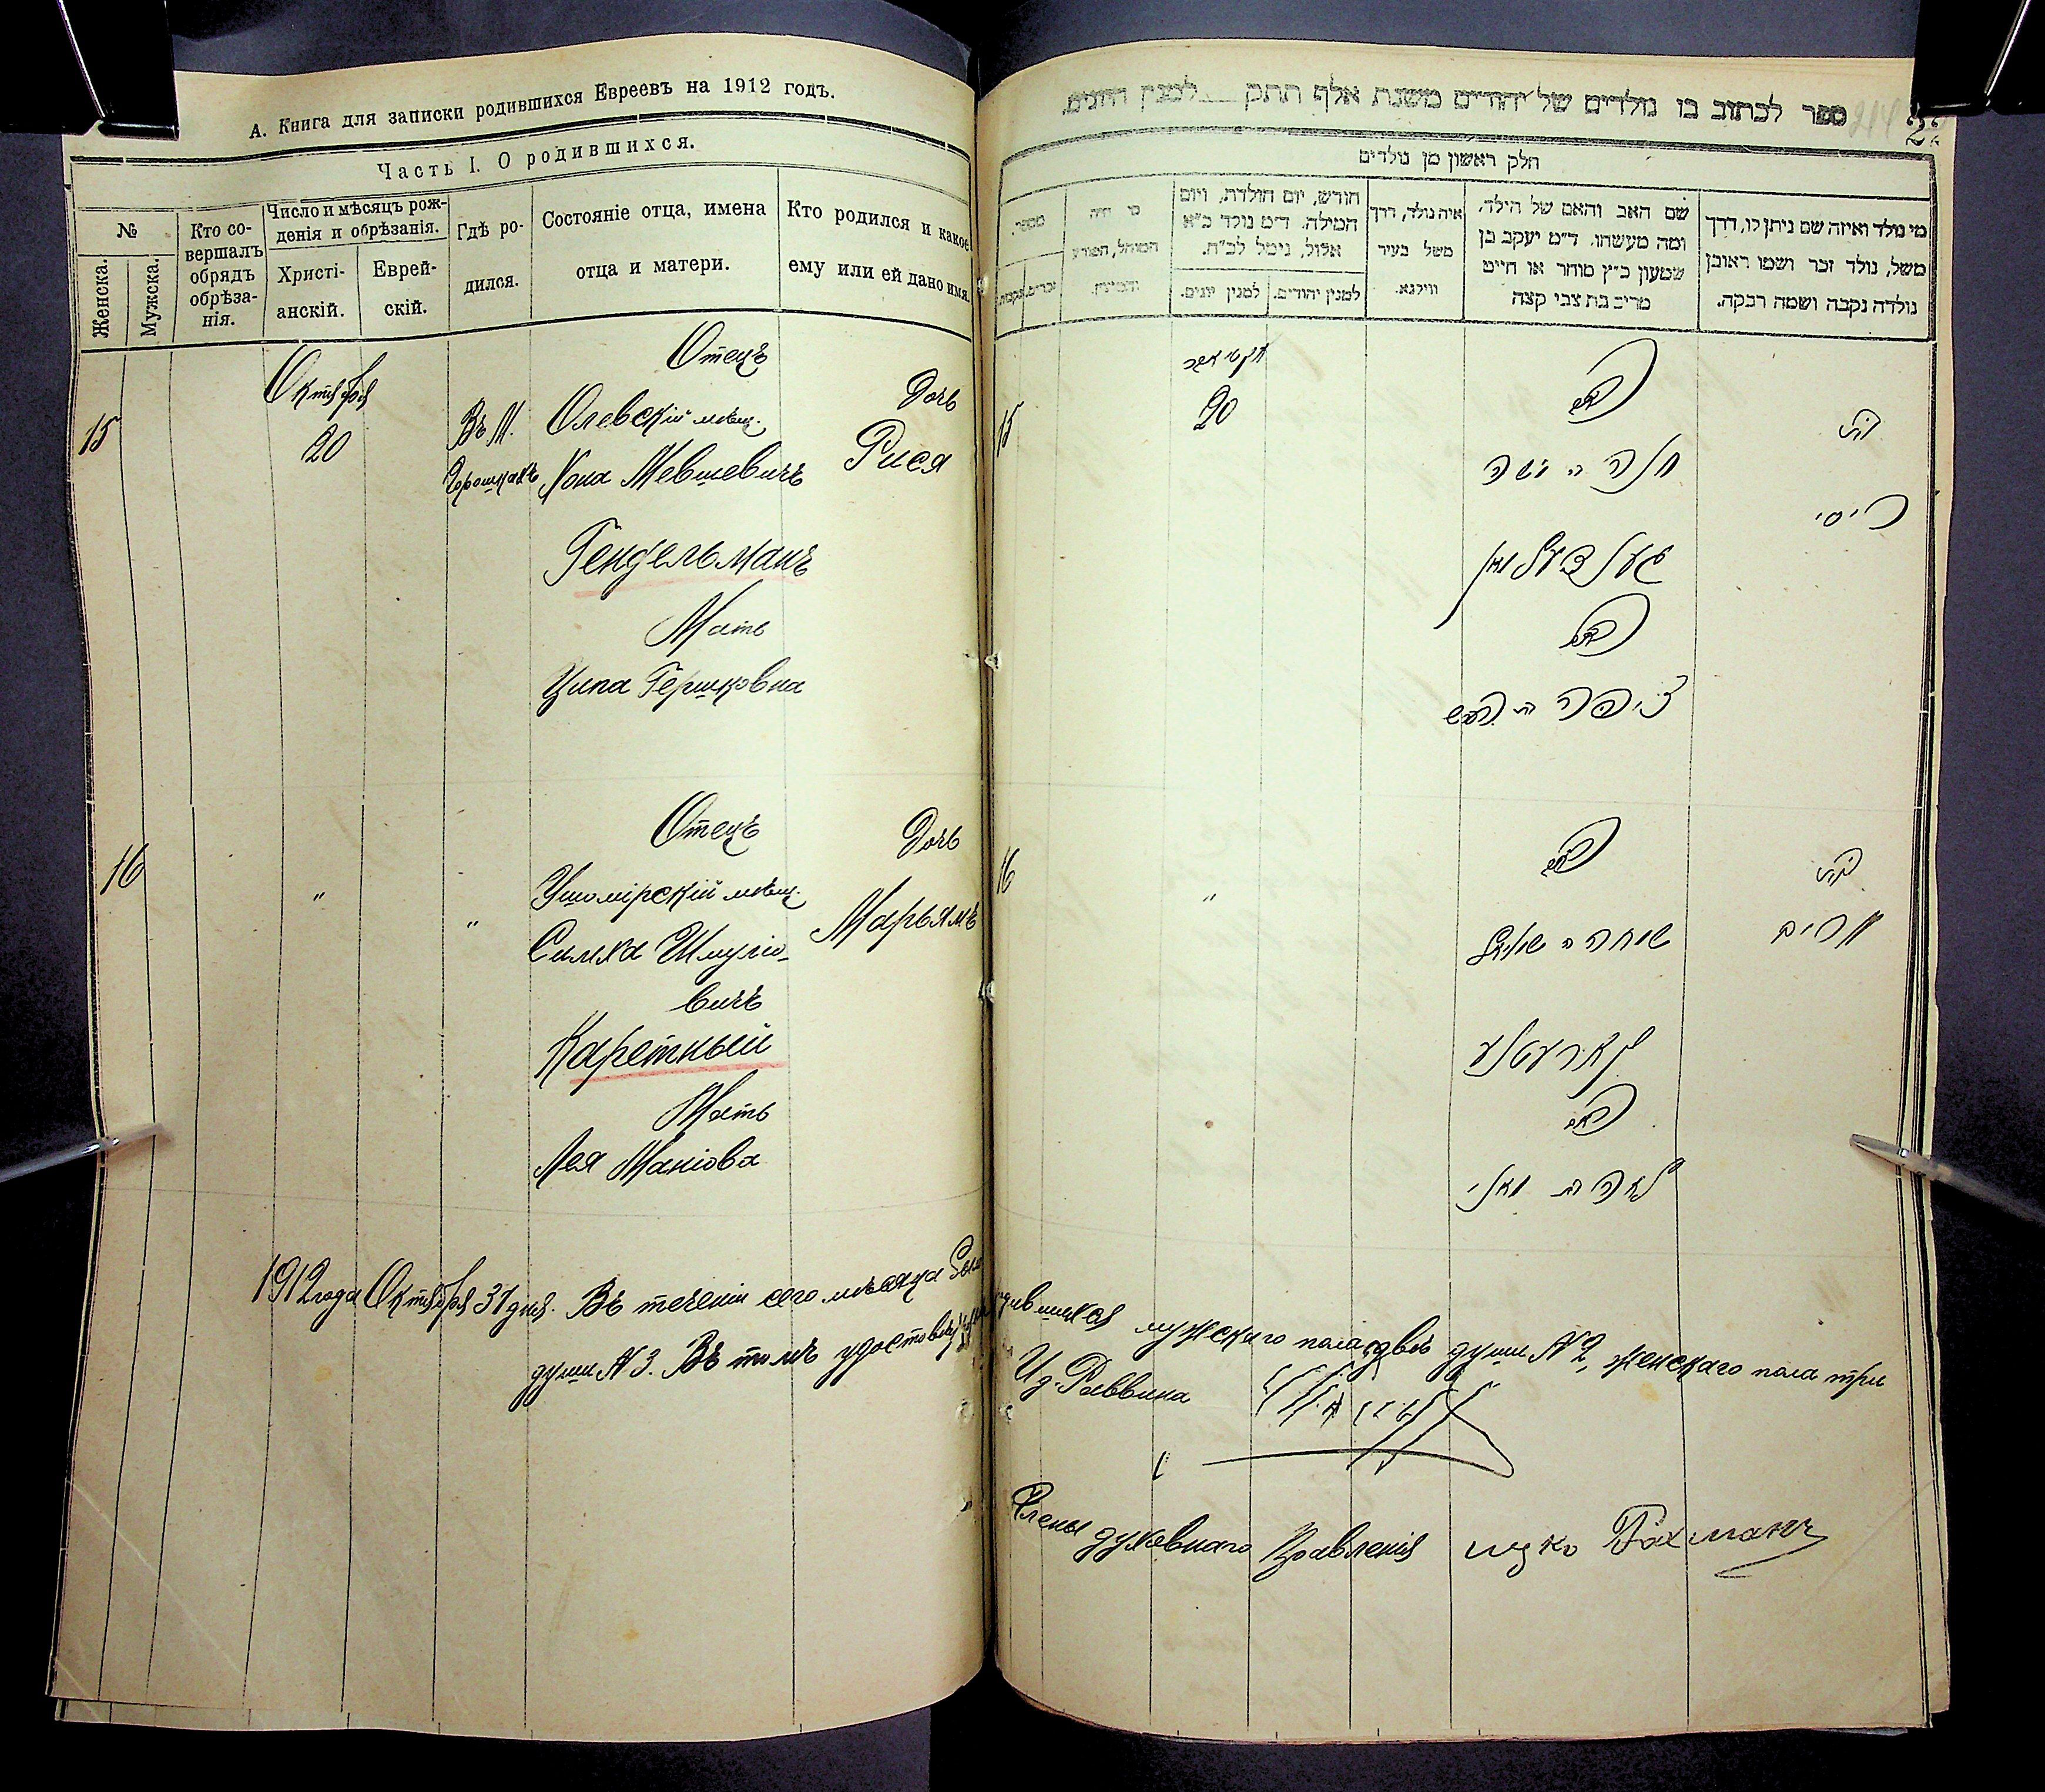 А. Книга для записки родившихся Евреевъ на 1912 годъ.
Часть I. О родившихся.
№
Женска.
Мужска.
Кто со-
вершалъ
обрядъ
обрѣза-
нія.
Число и мѣсяцъ рож-
денія и обрѣзанія.
Христі-
анскій.
Еврей-
скій.
Гдѣ ро-
дился.
Состояніе отца, имена
отца и матери.
Кто родился и какое
ему или ей дано имя.
15
Октября
20
Въ М.
Горошкахъ
Отецъ
Олевскій мѣщ.
Хона Мевшевичъ
Гендельманъ
Мать
Ципа Гершковна
Дочь
Рися
16
"
"
Отецъ
Ушомірскій мѣщ.
Симха Шмуліо-
вичъ
Каретный
Мать
Лея Маніова
Дочь
Марьямъ
ספר לכתוב בו נולדים של יהודים משנת אלף תתק למנין היונים.
214
חלק ראשון מן נולדים
מספר.
זכרים.
נקבות.
מי היה
המוהל, הפורע
חודש, יום הולדת, ויום
המילה. ד"מ נולד כ"א
אלול, נימל לכ"ח.
למנין יונים.
למנין יהודים.
איה נולד, דרך
משל בעיר
ווילנא.
שם האב והאם של הילד,
ומה מעשהו. ד"מ יעקב בן
שמעון כ"ץ סוחר או חייט
מרים בת צבי קצה
מי נולד ואיזה שם ניתן לו, דרך
משל, נולד זכר ושמו ראובן
נולדה נקבה ושמה רבקה.
15
20
האב
האם
ציפה
בת
ריסי
16
"
האב
שמחה
האם
לאה בת מאני
בת
מרים
1912 года Октября 31 дня. Въ теченіи сего мѣсяца было родившихся мужскаго пола двѣ души № 2, женскаго пола три
души № 3. Въ томъ удостовѣряемъ
И.д. Раввина
Члены духовнаго Правленія Ицко Гахманъ